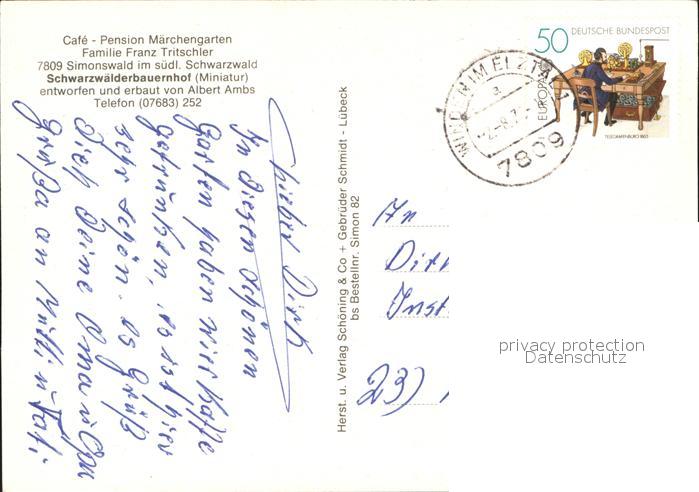 Café - Pension Märchengarten
Familie Franz Tritschler
7809 Simonswald im südl. Schwarzwald
Schwarzwälderbauernhof (Miniatur)
entworfen und erbaut von Albert Ambs
Telefon (07683) 252
Lieber Dirk
In diesen schönen
Garten haben wir Kaffe
getrunken, es ist hier
sehr schön. es Grüß
Dich Deine Oma u Opa
Grüße an Mutti u Vati.
Herst. u. Verlag Schöning & Co + Gebrüder Schmidt - Lübeck
bs Bestellnr. Simon 82
50 DEUTSCHE BUNDESPOST
EUROPA
TELEGRAFENBÜRO 1863
WINDEN IM ELZTAL 1
a
7809
An
Dir
Inst
23)
privacy protection
Datenschutz